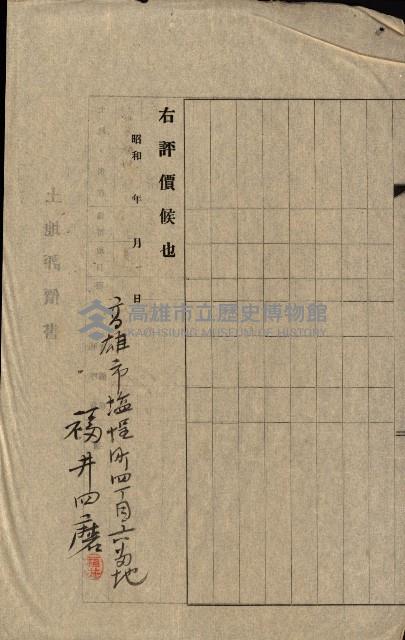 右評價候也
昭和 年 月 日
高雄市塩埕町四丁目六番地
福井四磨
土地評價書
高雄市立歷史博物館
KAOHSIUNG MUSEUM OF HISTORY